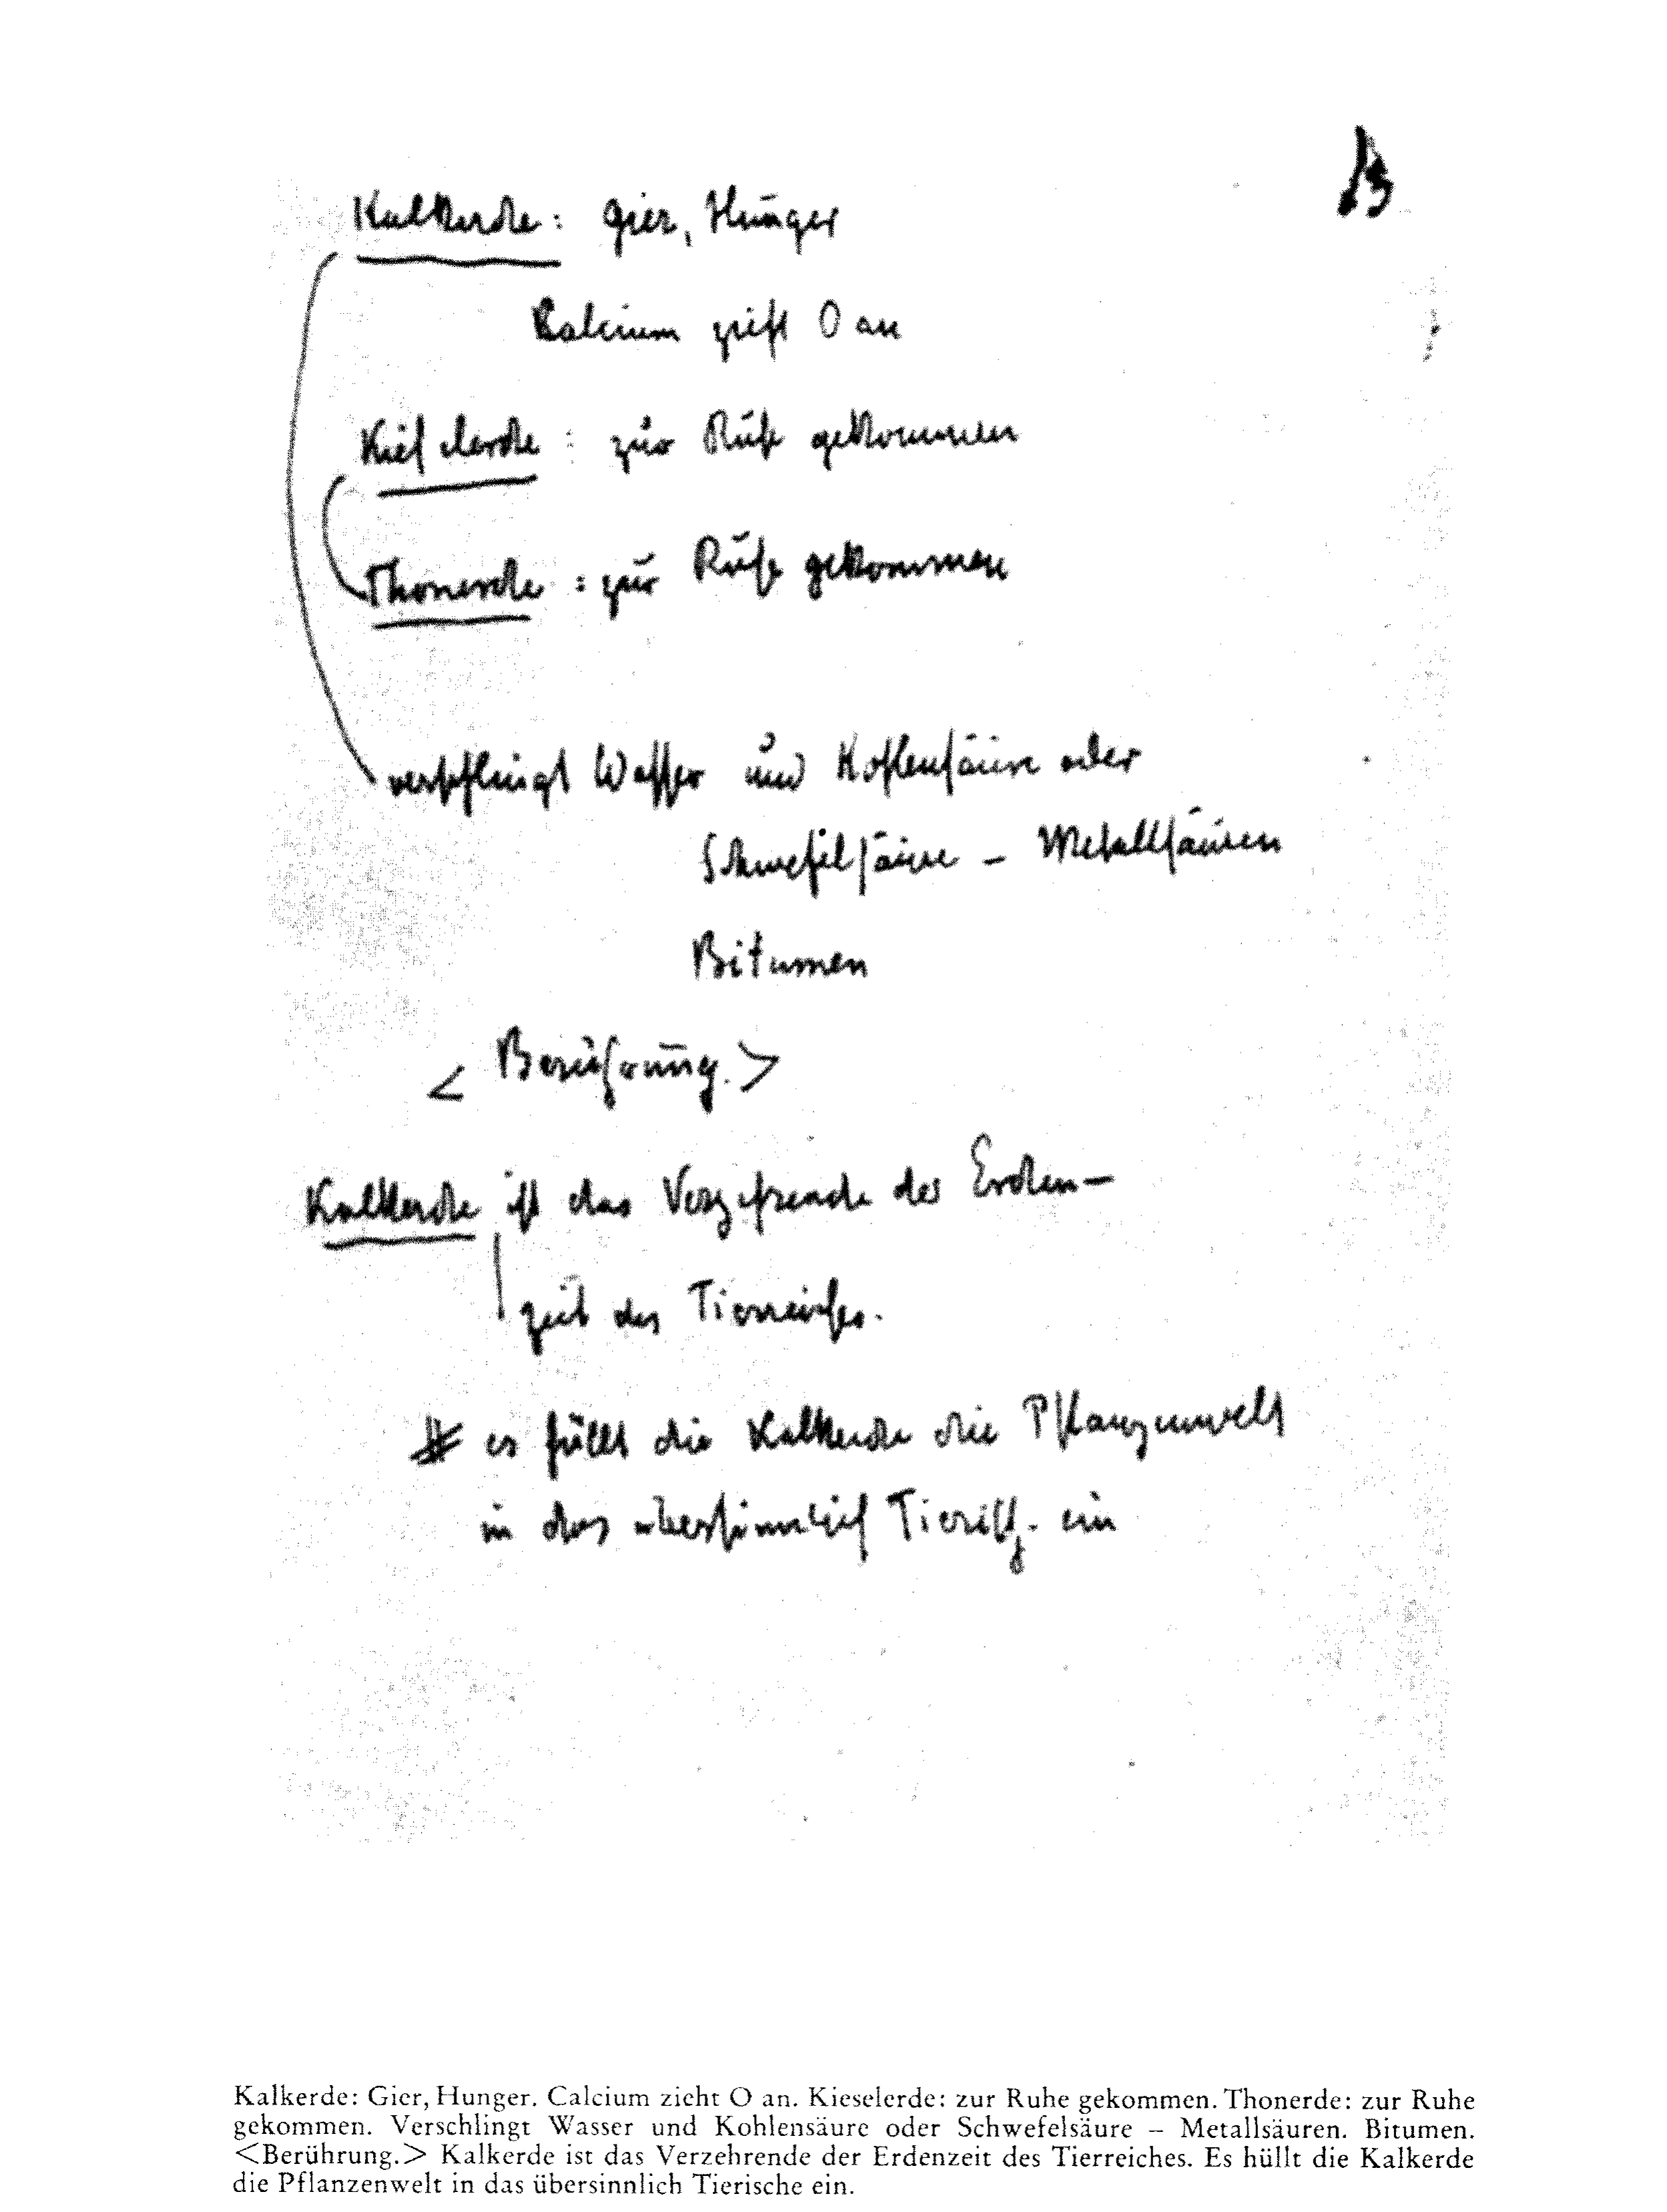 13
Kalkerde: Gier, Hunger
Calcium zieht O an
Kieselerde: zur Ruhe gekommen
Thonerde: zur Ruhe gekommen
verschlingt Wasser und Kohlensäure oder
Schwefelsäure – Metallsäuren
Bitumen
< Berührung. >
Kalkerde ist das Verzehrende der Erden-
zeit des Tierreiches.
# es hüllt die Kalkerde die Pflanzenwelt
in das übersinnlich Tierische ein
Kalkerde: Gier, Hunger. Calcium zieht O an. Kieselerde: zur Ruhe gekommen. Thonerde: zur Ruhe
gekommen. Verschlingt Wasser und Kohlensäure oder Schwefelsäure – Metallsäuren. Bitumen.
<Berührung.> Kalkerde ist das Verzehrende der Erdenzeit des Tierreiches. Es hüllt die Kalkerde
die Pflanzenwelt in das übersinnlich Tierische ein.